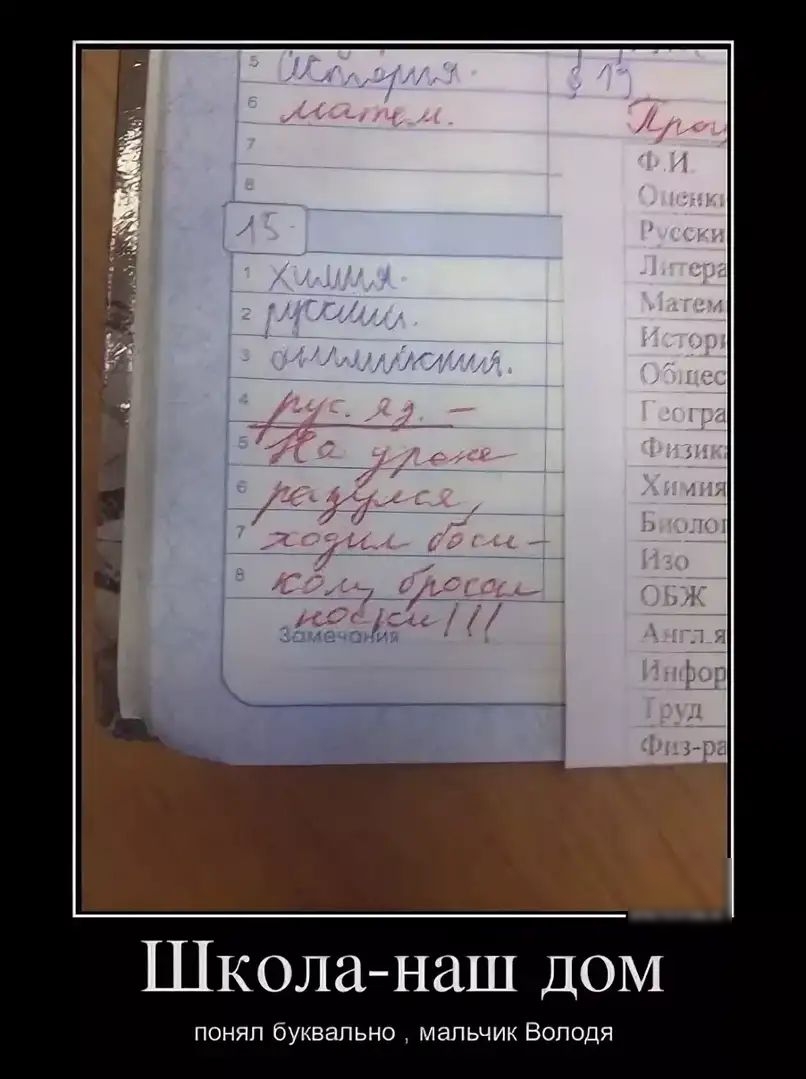 5 История. § 19
6 матем.
7
8
15.
1 химия.
2 русский.
3 английский.
4 рус. яз. –
5 На уроке
6 разулся,
7 ходил боси-
8 ком, бросал
носки!!!
Замечания
Ф.И.
Оценки
Русски
Литера
Матем
Истори
Общес
Геогра
Физика
Химия
Биолог
Изо
ОБЖ
Англ.я
Инфор
Труд
Физ-ра
Школа-наш дом
понял буквально , мальчик Володя